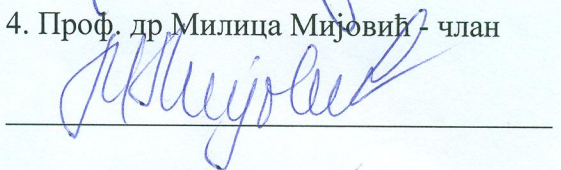 4. Проф. др Милица Мијовић - члан
М Мијовић